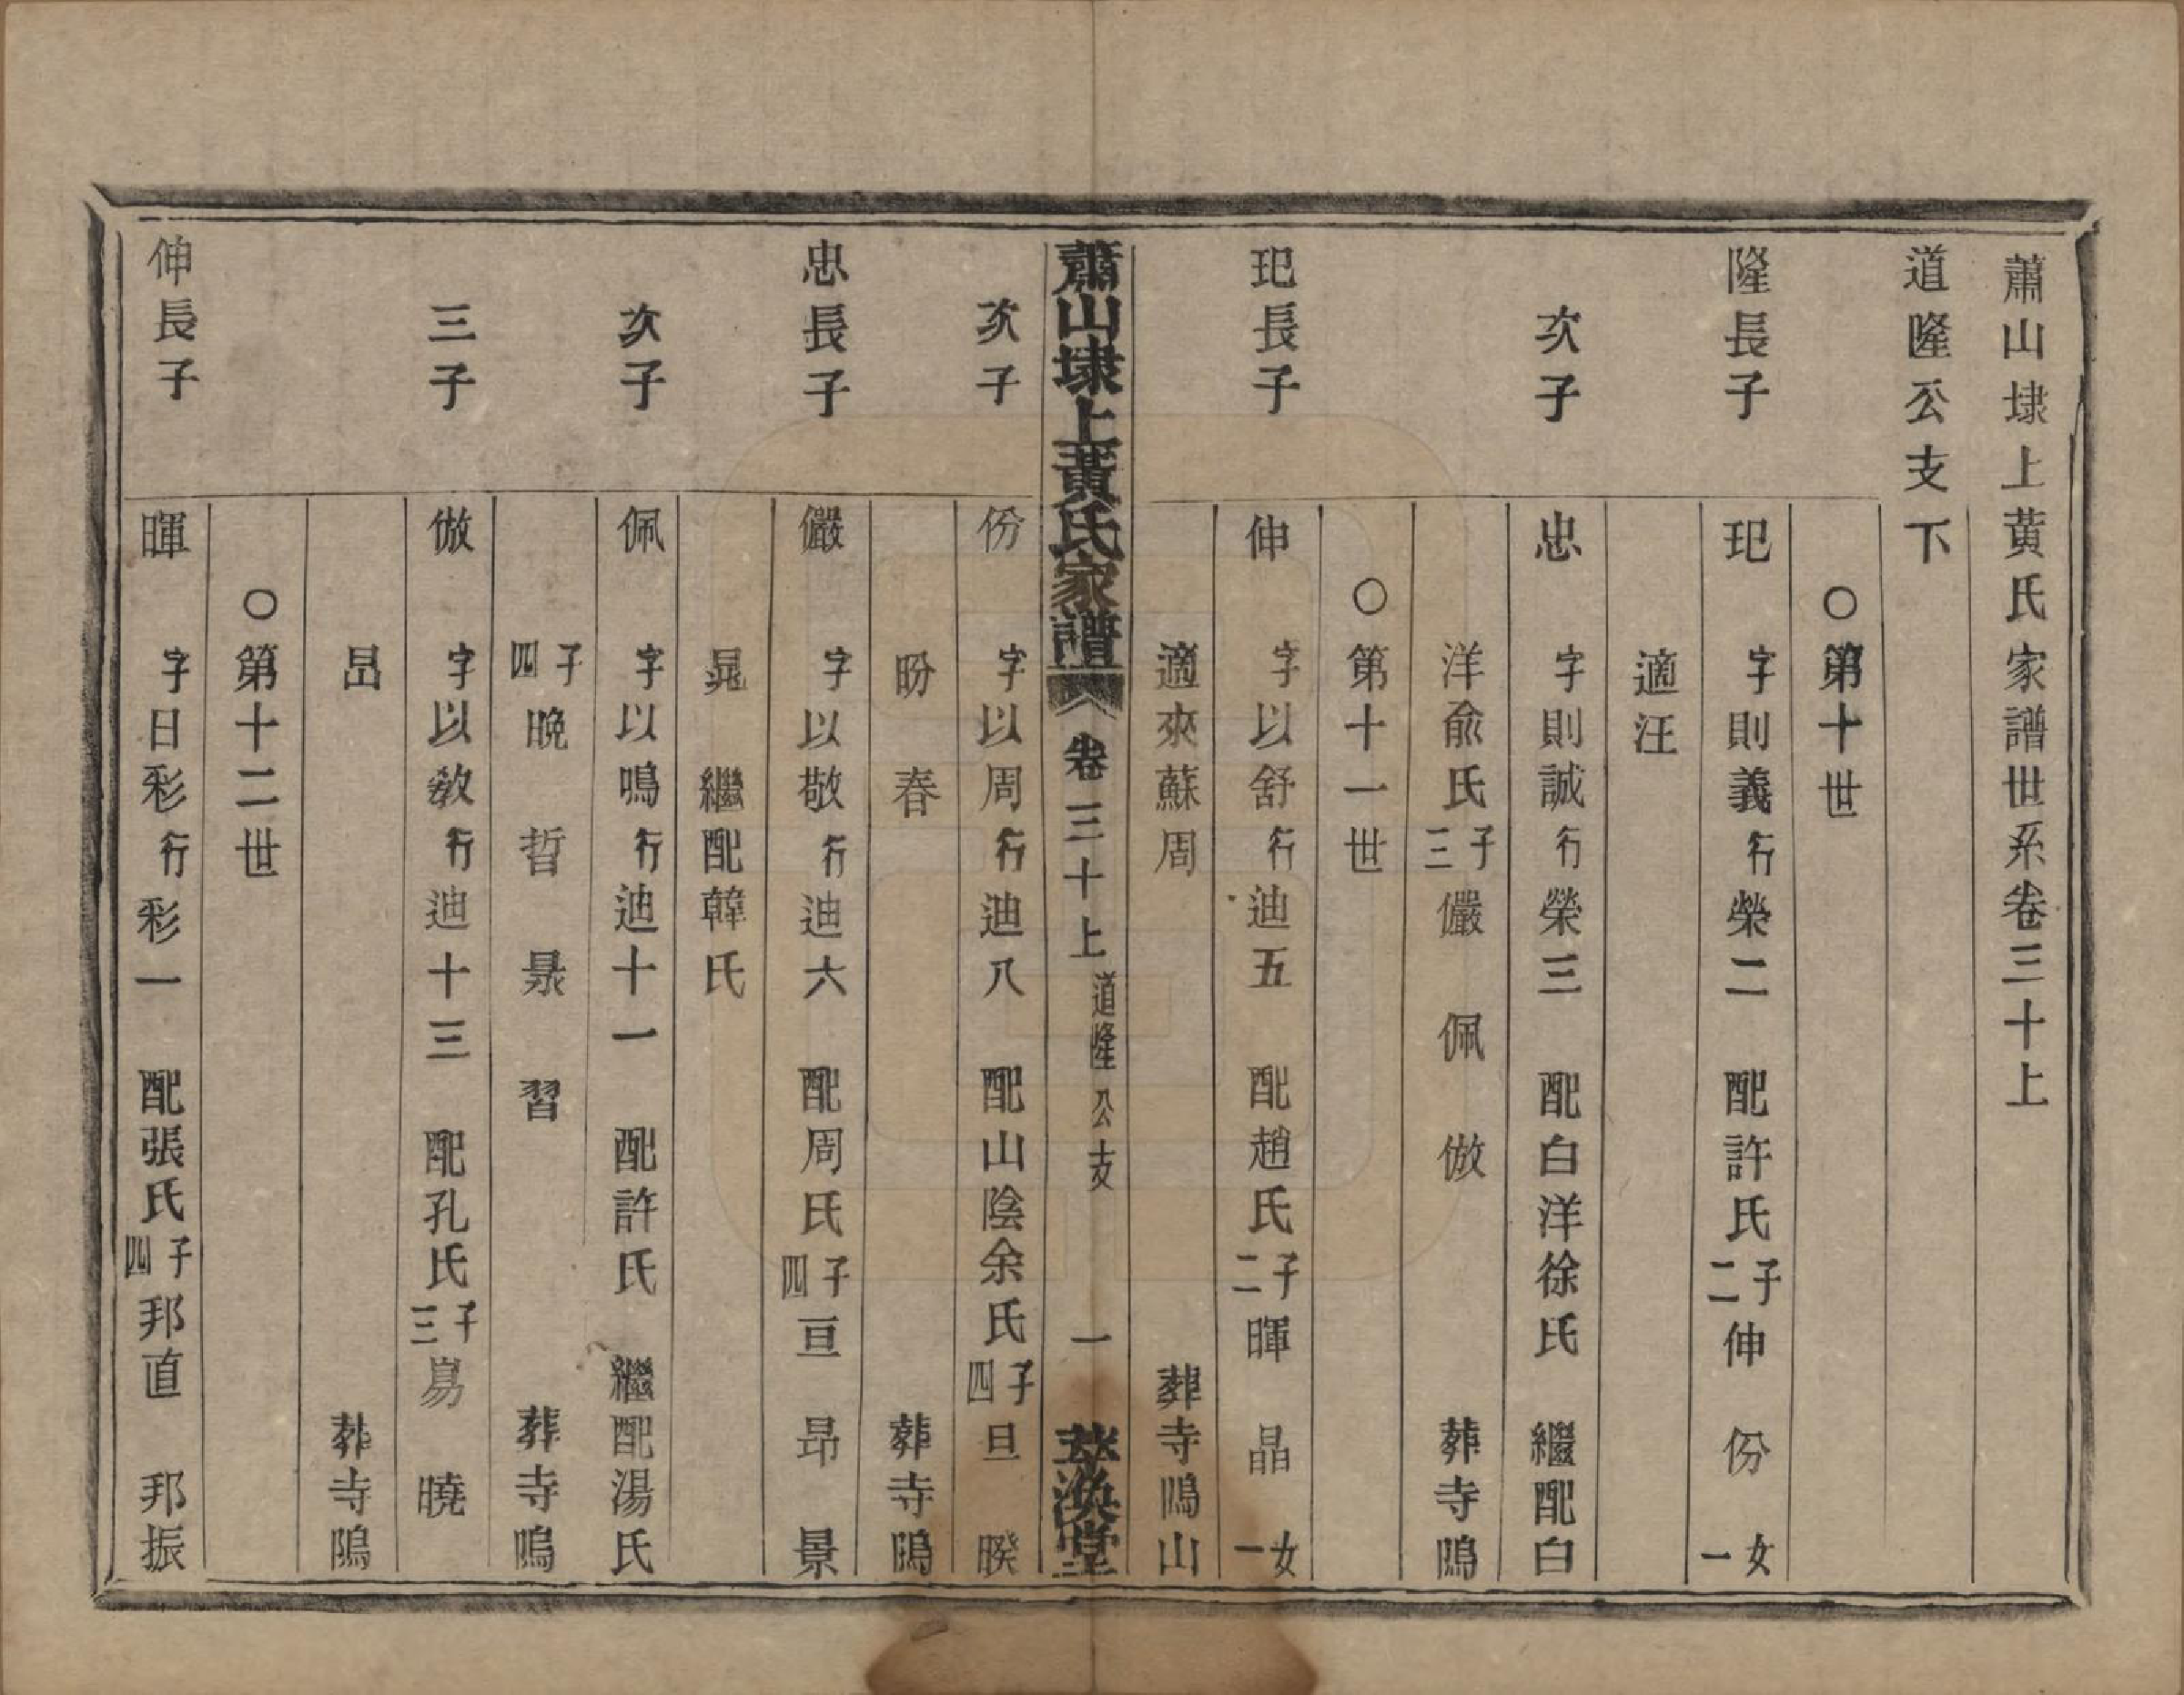 蕭山埭上黄氏家譜世系卷三十上
道隆公支下
○第十世
隆長子 玘 字則義行榮二 配許氏子二伸 份 女一
適汪
次子 忠 字則誠行榮三 配白洋徐氏 繼配白
洋俞氏子三儼 佩 倣 葬寺隖
○第十一世
玘長子 伸 字以舒行迪五 配趙氏子二暉 晶 女一
適來蘇周 葬寺隖山
蕭山埭上黄氏家譜 卷三十上 道隆公支 一 萃渙堂
次子 份 字以周行迪八 配山陰余氏子四旦 暌
昐 春 葬寺隖
忠長子 儼 字以敬行迪六 配周氏子四亘 昻 景
晃 繼配韓氏
次子 佩 字以鳴行迪十一 配許氏 繼配湯氏
子四晩 晢 暴 習 葬寺隖
三子 倣 字以敎行迪十三 配孔氏子三昜 曉
昌 葬寺隖
○第十二世
伸長子 暉 字日彩行彩一 配張氏子四邦直 邦振